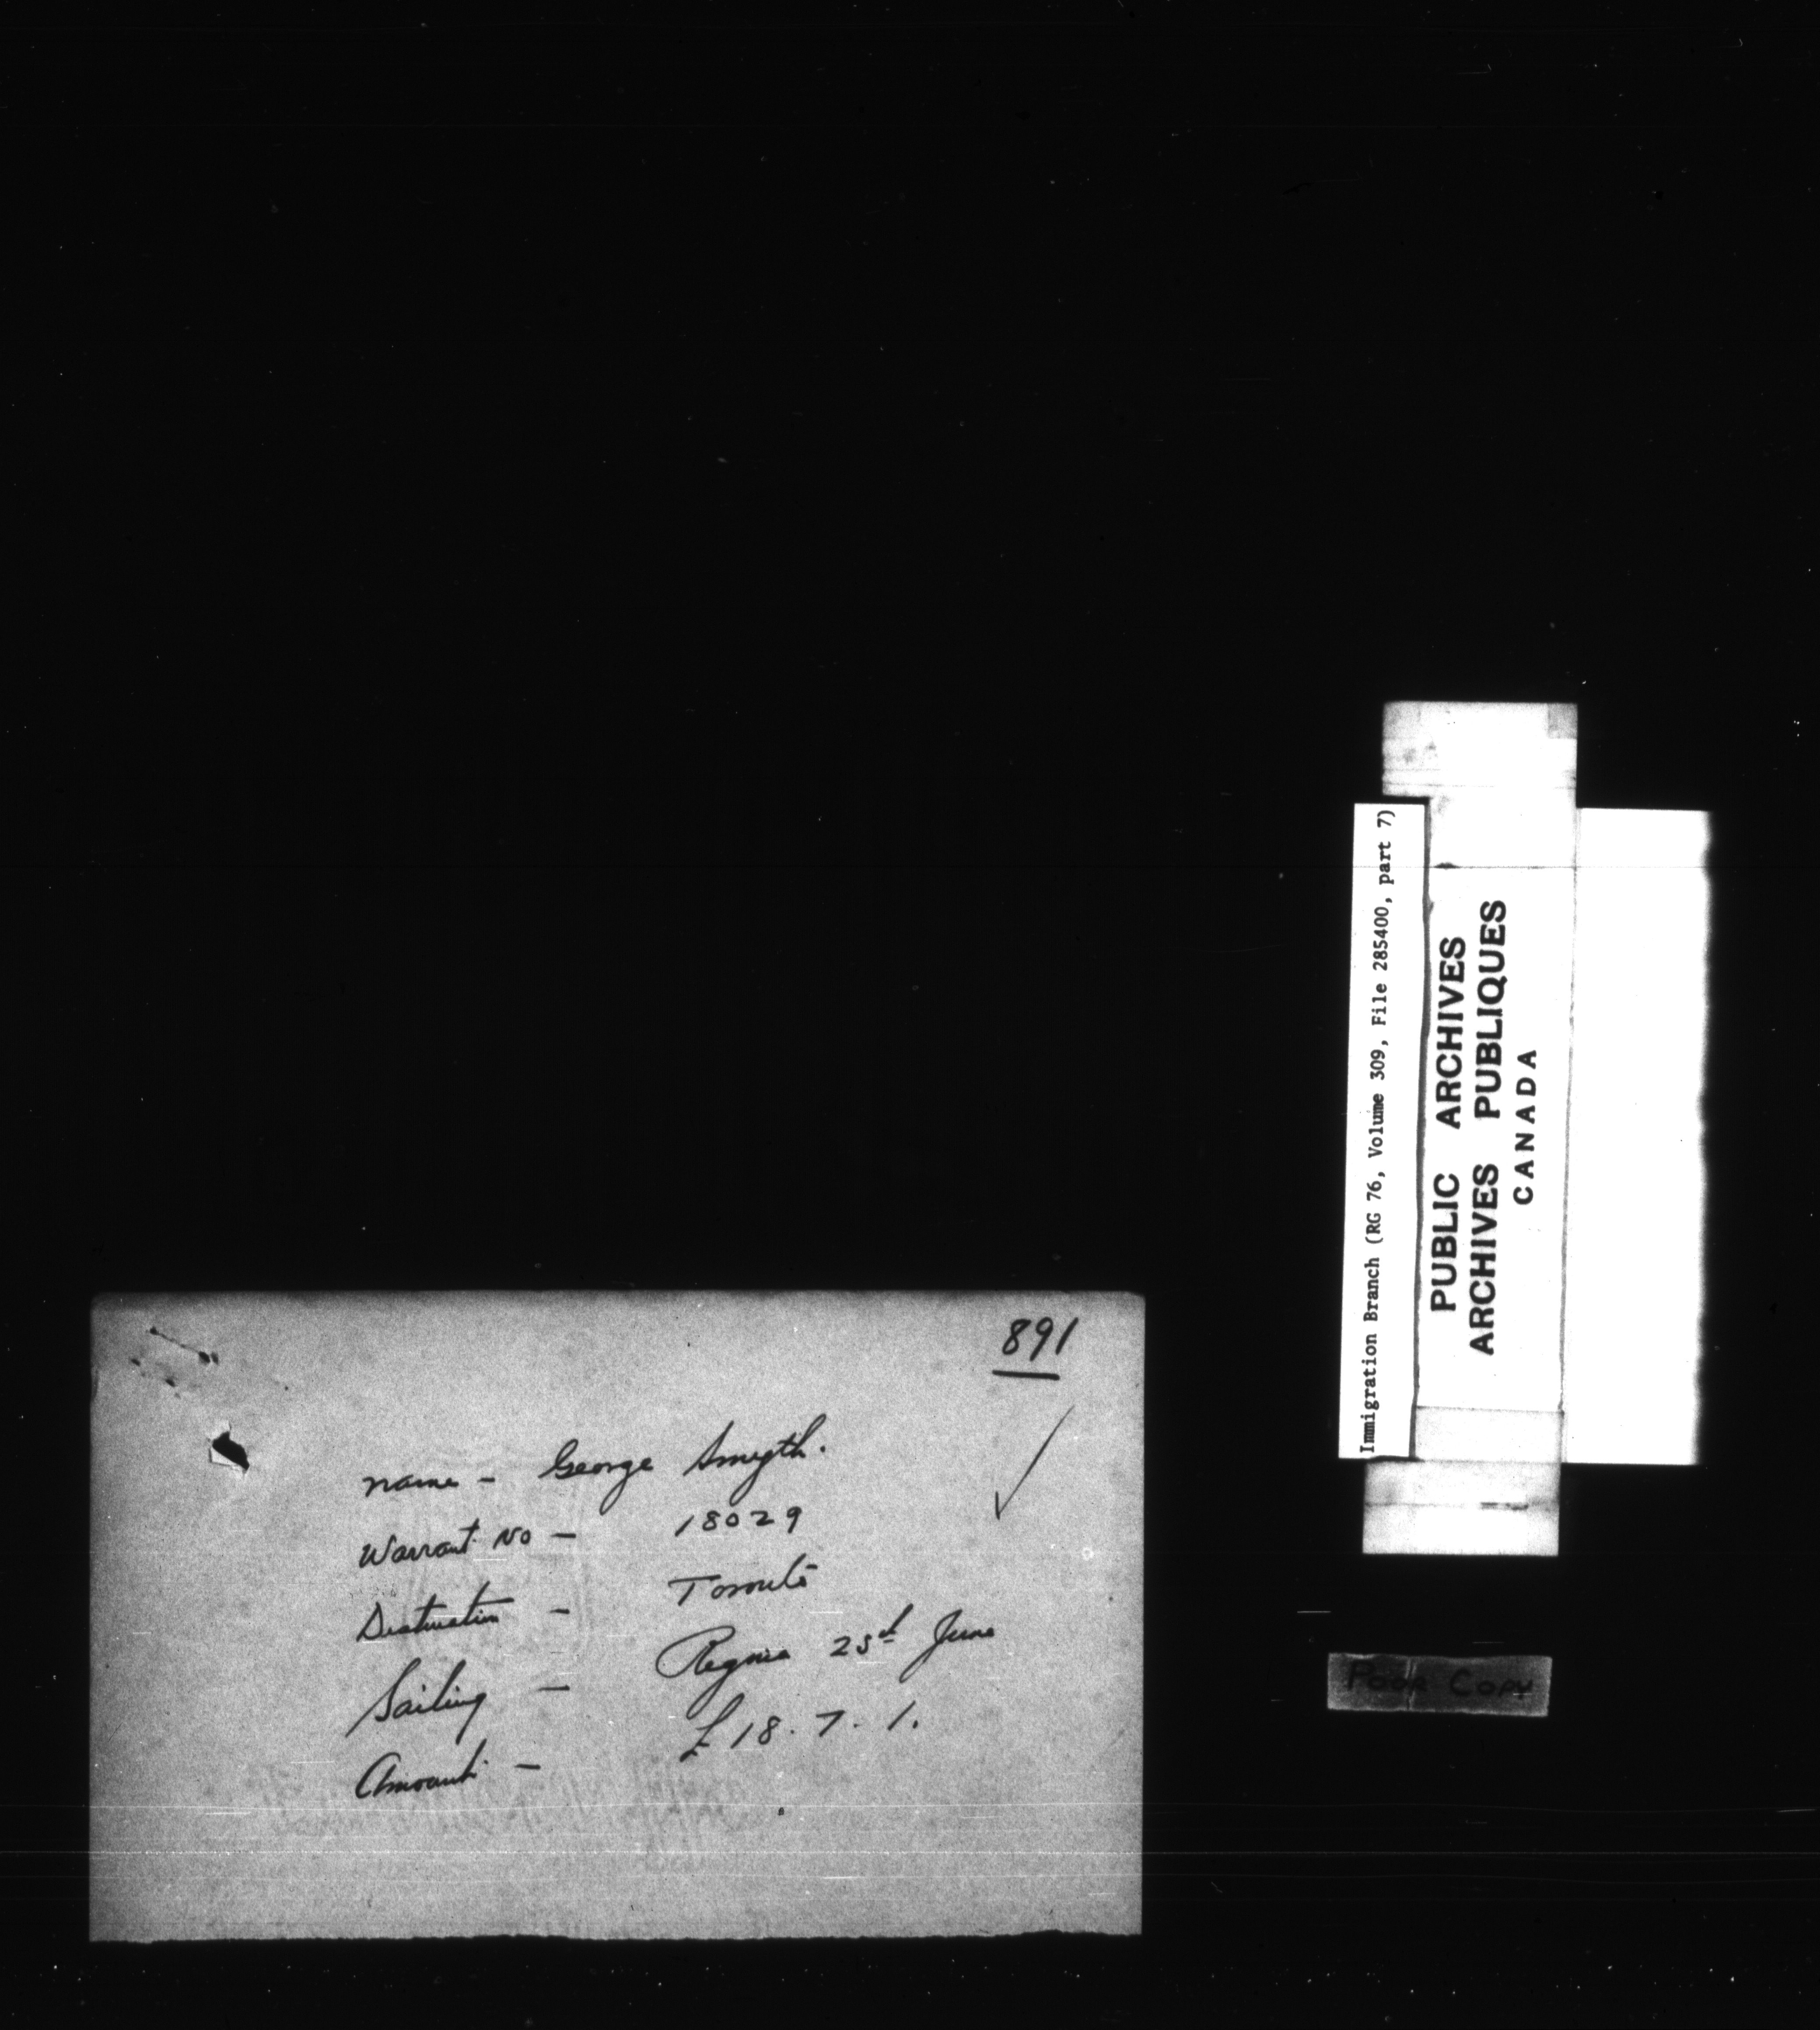 891
Name - George Smyth.
Warrant No - 18029
Destination - Toronto
Sailing - Regina 25th June
Amount - £18. 7. 1.
Immigration Branch (RG 76, Volume 309, File 285400, part 7)
PUBLIC ARCHIVES
ARCHIVES PUBLIQUES
CANADA
Poor Copy